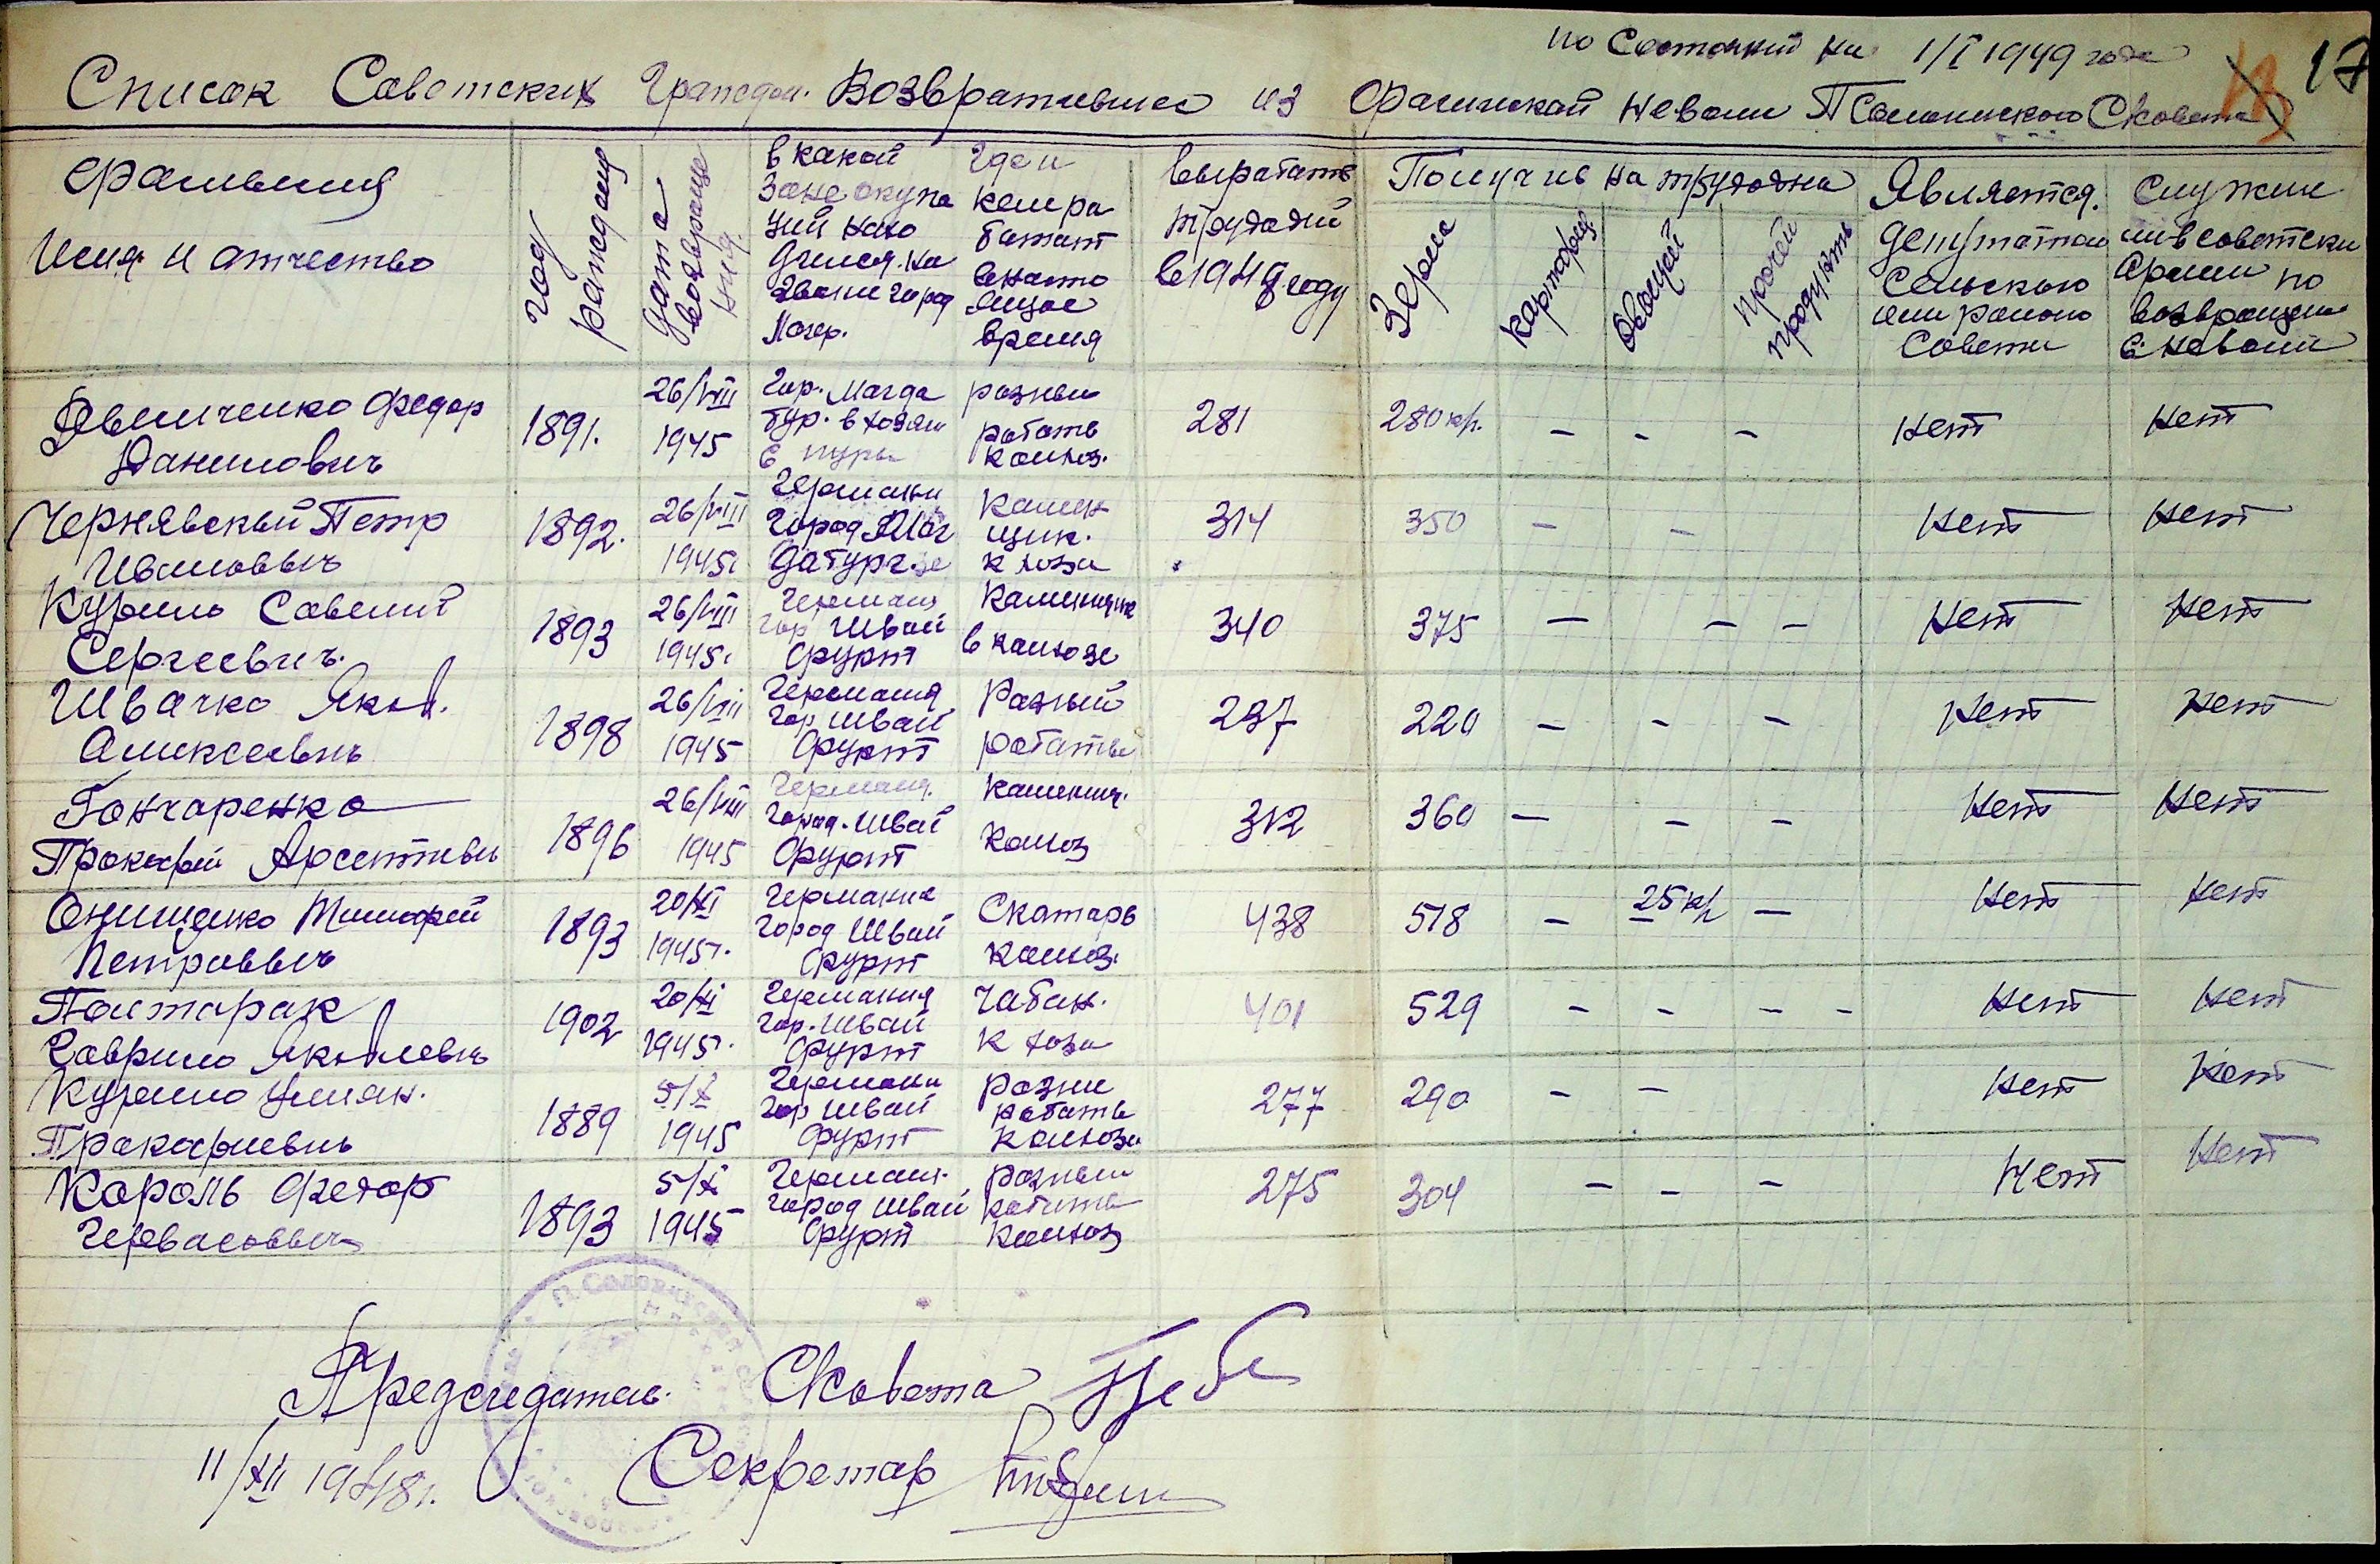 по Состоянию на 1/I 1949 года
17
Список Советских Граждан. Возвратившиес из Фашиской Неволи
фамилия
Имя и отчество
год рождения
дата возвраще ния
в какой
Зоне окупа
ций нахо
дился. на
звание город
Лагер.
Где и
кем ра
ботает
в насто
ящое
время
выработ
трудодний
в 1948 году
Получив на трудодня
Зерна
картофиля
Овощей
прочей продукты
Является.
депутатом
Сельского
или районо
Совета
Служил
ли в советски
Армии по
возвращен
с неволи
Федор
Данилович
1891.
26/VIII
1945
Гор. Магда
бур. в хозяи
разный
работы
колхоз.
281
280 кр.
– – –
нет
нет
Чернявский Петр
Ивановыч
1892.
26/VIII
1945г
Германи
Город Маг
датург.
Камен
щик.
к хоза
314
350
– –
нет
нет
Курило Савелий
Сергеевич.
1893
26/VIII
1945г
Германия
гор Швай
Фурпт
Каменщик
в колхозе
340
375
– – –
Нет
Нет
Швачко Яков.
Аликсеевич
1898
26/VIII
1945
Германия
гор Швай
Фурпт
Разный
работы
237
220
– – –
Нет
Нет
Гончаренко
Прокофий Арсентиевич
1896
26/VIII
1945
Германия.
Город. Швай
Фурпт
Каменщ.
Колхоз
312
360
– – –
Нет
Нет
Онищенко Тимофей
Петровыч
1893
20/XI
1945г.
Германия
Город Швай
Фурпт
Скотарь
колхоз.
438
518
– 25 кр –
Нет
Нет
Полтарак
Гаврило Яковлевич
1902
20/XI
1945г.
Германия
гор. Швай
Фурпт
Чабан.
к хоза
401
529
– – – –
Нет
Нет
Курило
Пракофиевич
1889
5/X
1945
Германи
гор Швай
Фурпт
разни
работы
колхоза
277
290
– –
Нет
Нет
Король Федор
Герваеовыч
1893
5/X
1945
Германия.
город Швай
Фурпт
разный
работы
колхоз
275
304
– – –
Нет
Нет
Председатель. Сковета
11/XII 1948г.
Секретар